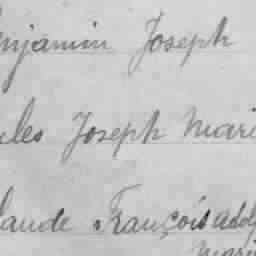 enjamin Joseph
ules Joseph Mari
laude François Adol
Mari